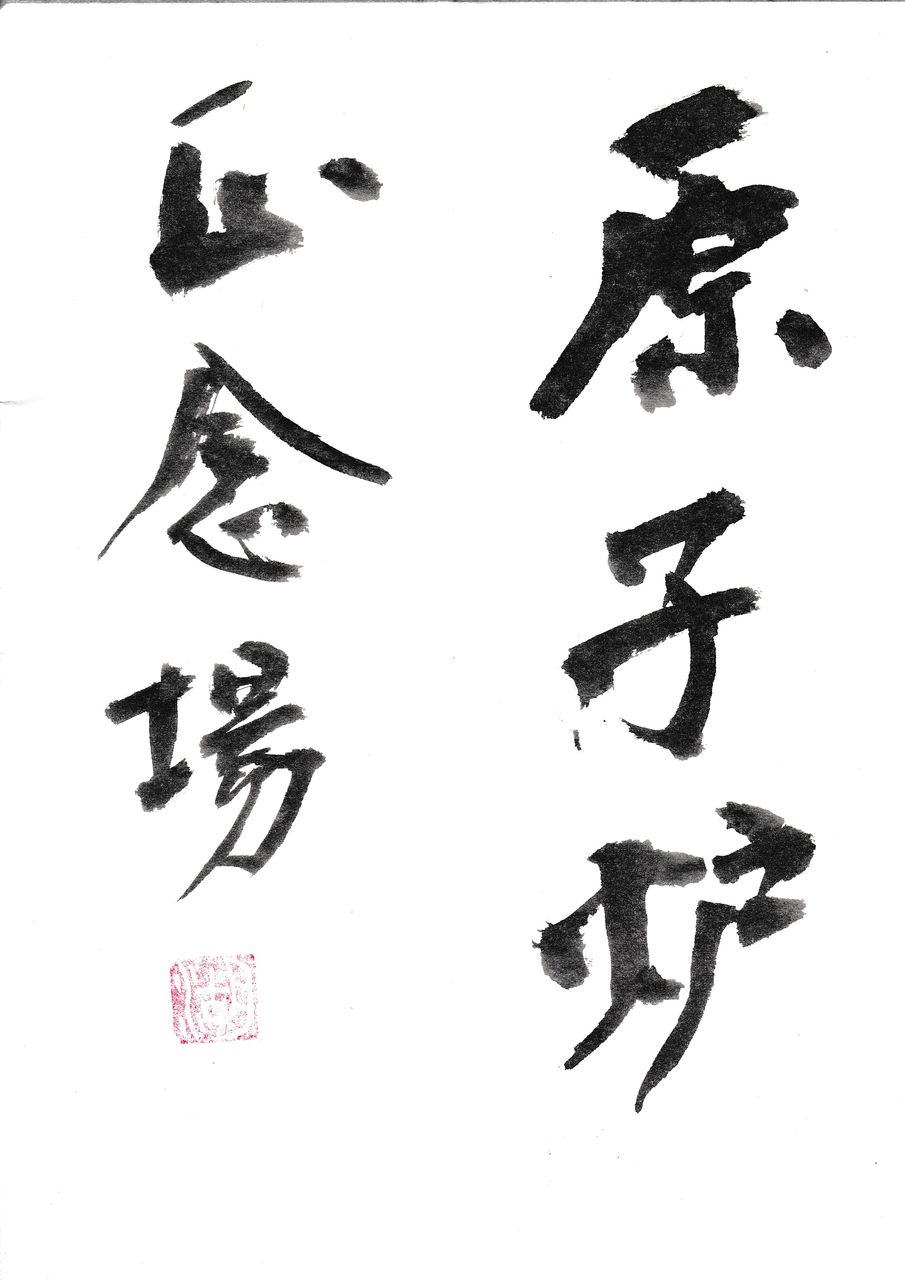 原子炉
正念場